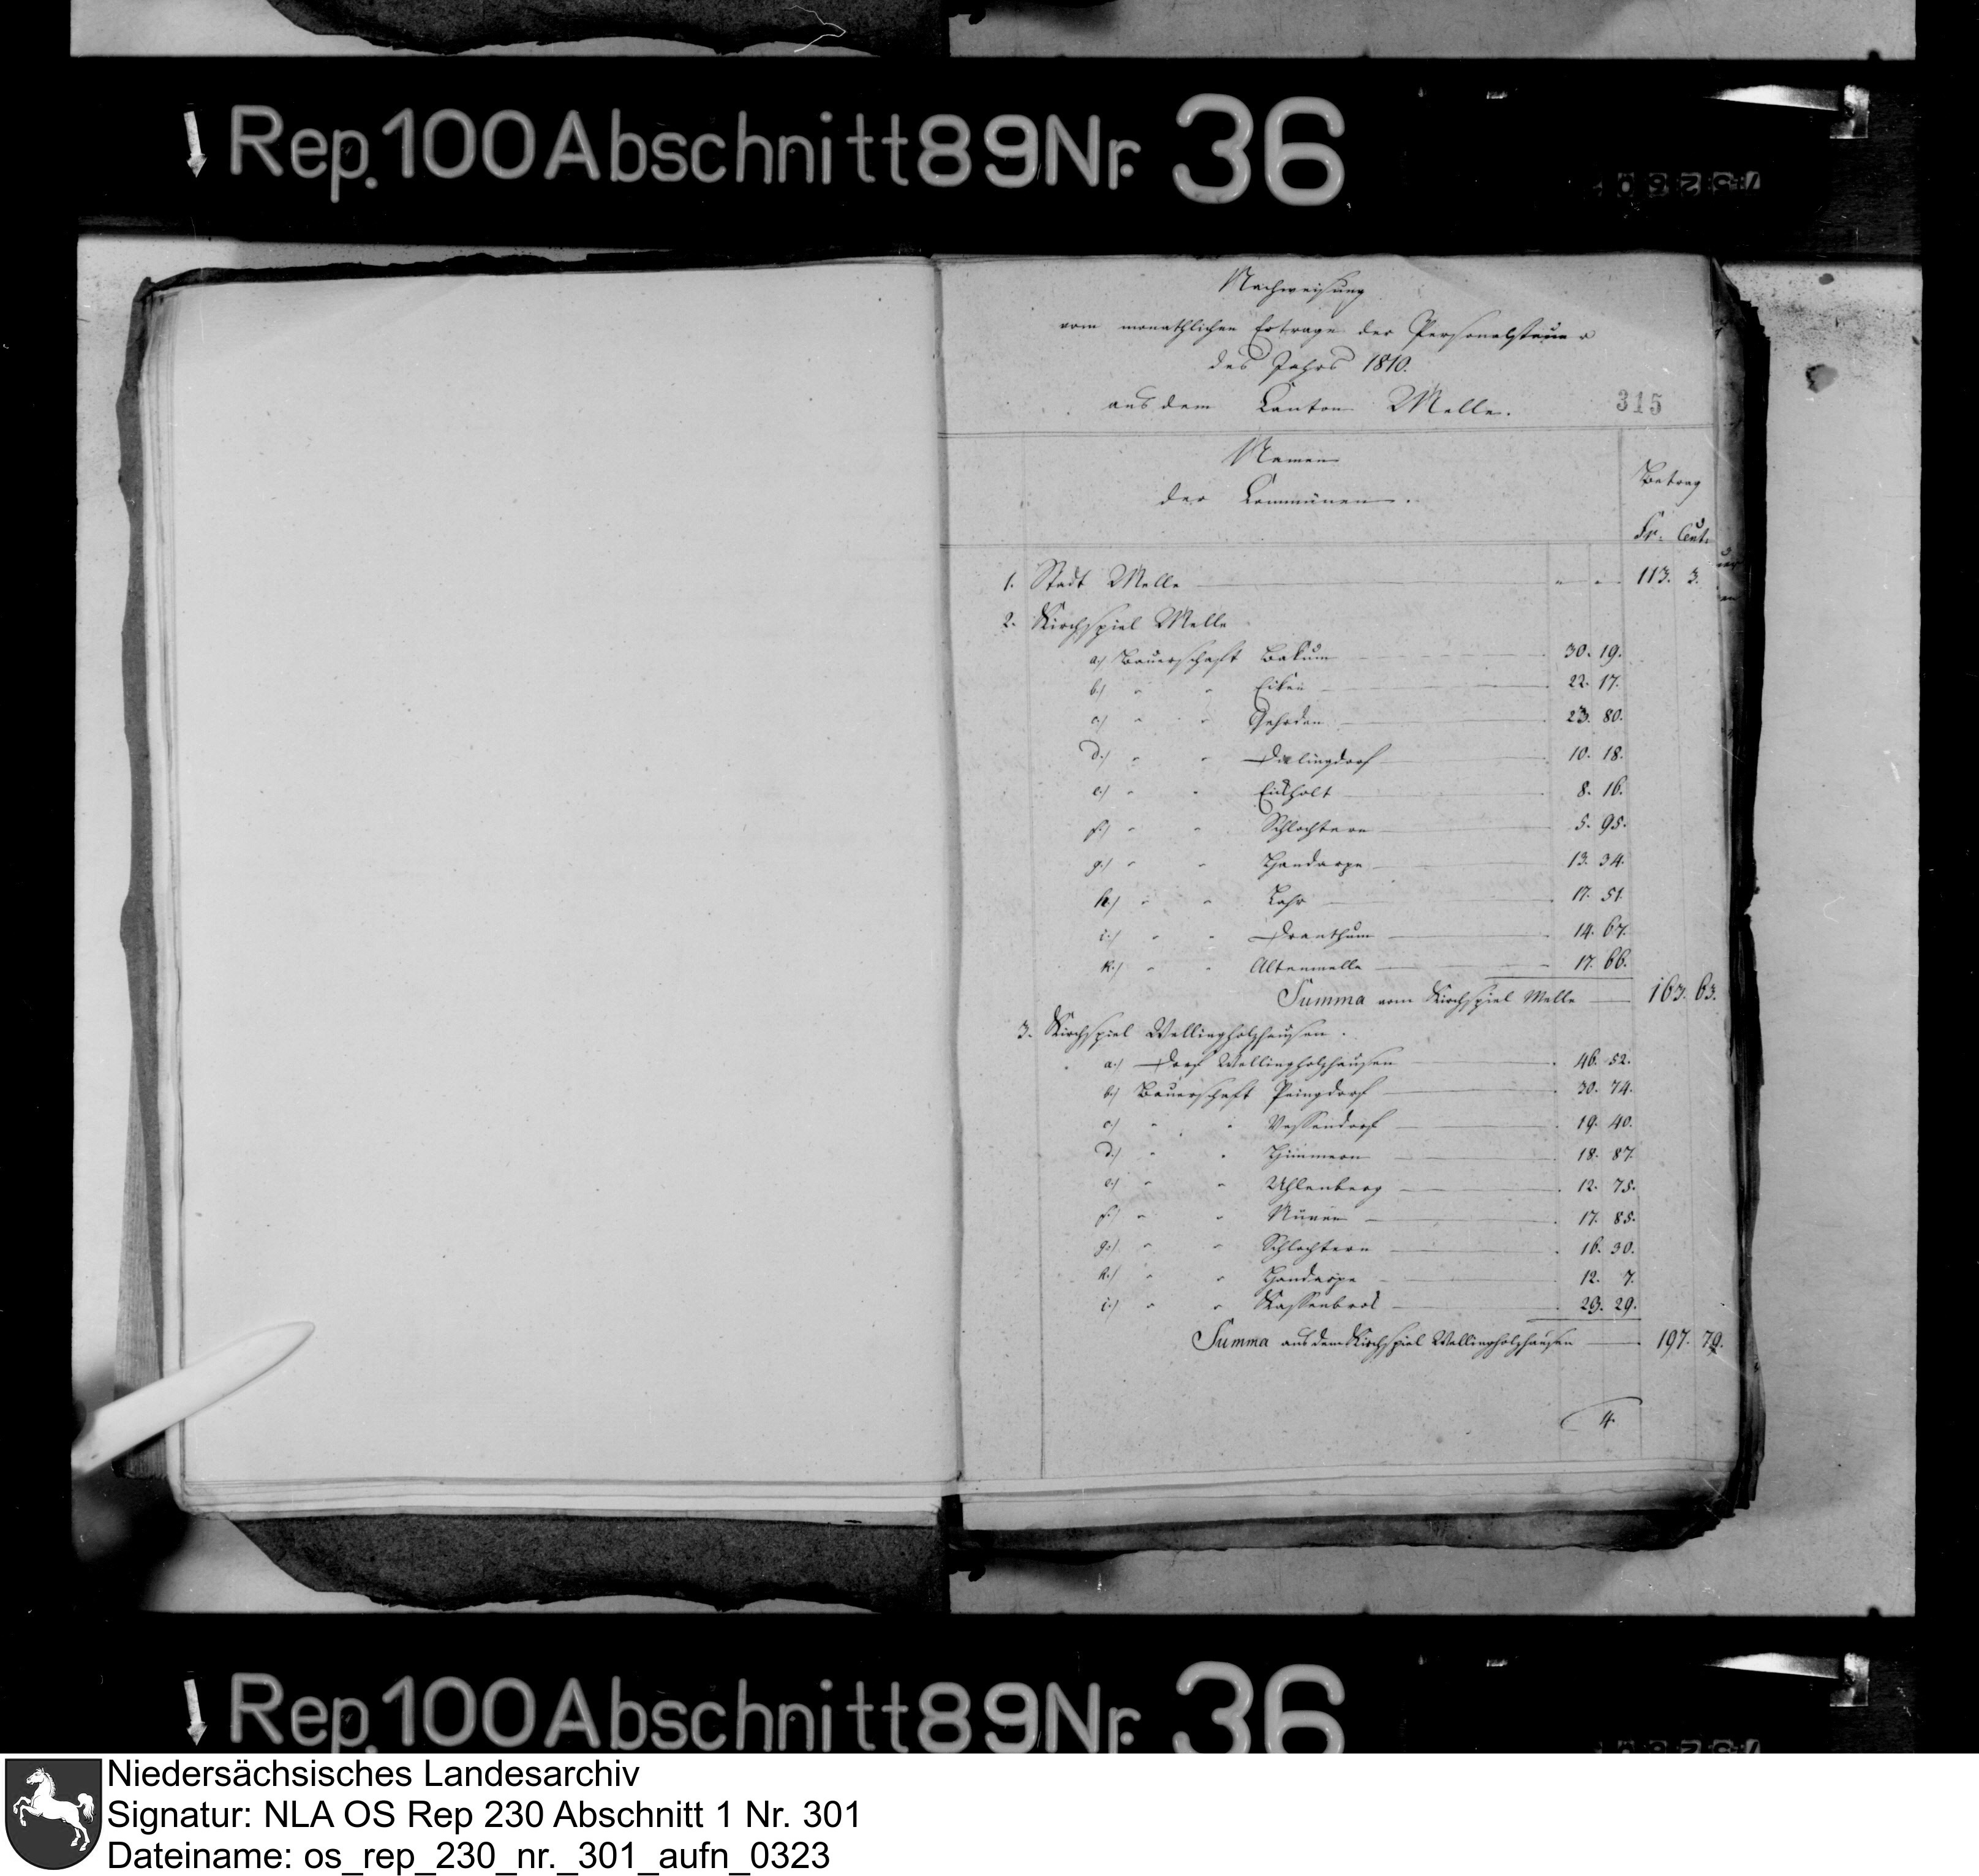 Rep. 100 Abschnitt 89 Nr. 36
Nachweisung
vom monathlichen Ertrage der Personalsteuer
des Jahrs 1810.
aus dem Canton Melle.
315
Namen
der Communen.
Betrag
Fr. Cent.
1. Stadt Melle " " 113. 3.
2. Kirchspiel Melle
a.) Bauerschaft Bakum 30. 19.
b.) " " Eiken 22. 17.
c.) " " Gehrden 23. 80.
d.) " " Dielingdorf 10. 18.
e.) " " Eickholt 8. 16.
f.) " " Schlochtern 5. 95.
g.) " " Handarpe 13. 34.
h.) " " Laer 17. 51.
i.) " " Dranthum 14. 67.
k.) " " Altenmelle 17. 66.
Summa vom Kirchspiel Melle 163. 63.
3. Kirchspiel Wellingholzhausen.
a.) Dorf Wellingholzhausen 46. 52.
b.) Bauerschaft Peingdorf 30. 74.
c.) " " Vessendorf 19. 40.
d.) " " Himmern 18. 87.
e.) " " Uhlenberg 12. 75.
f.) " " Nüven 17. 85.
g.) " " Schlochtern 16. 30.
h.) " " Handarpe 12. 7.
i.) " " Kassenbrok 23. 29.
Summa aus dem Kirchspiel Wellingholzhausen 197. 79.
4.
Rep. 100 Abschnitt 89 Nr. 36
Niedersächsisches Landesarchiv
Signatur: NLA OS Rep 230 Abschnitt 1 Nr. 301
Dateiname: os_rep_230_nr._301_aufn_0323